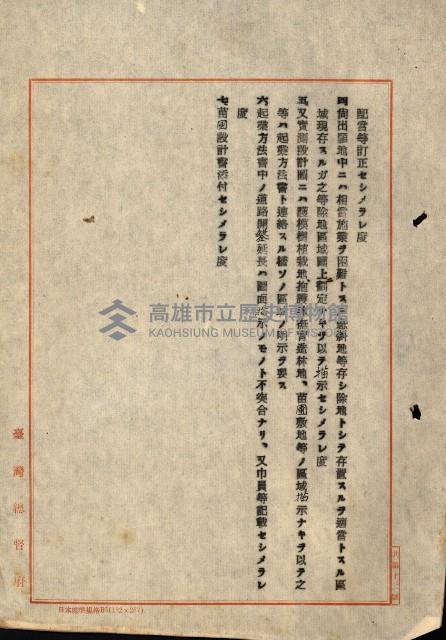 配當等訂正セシメラレ度
四尚出願地中ニハ相當施業ヲ困難トスル急斜地等存シ除地トシテ存置スルヲ適當トスル區
域現存スルガ之等除地區域圖上劃定シ以テ描示セシメラレ度
五又實測設計圖ニハ護模樹植栽地抱護林撫育造林地、苗圃敷地等ノ區域描示ナキヲ以テ之
等ハ起業方法書ト連絡スル樣ソノ區域ノ明示ヲ要ス
六起業方法書中ノ道路開鑿延長ハ圖面指示ノモノト不突合ナリ、又巾員等記載セシメラレ
度
七苗圃設計書添付セシメラレ度
高雄市立歷史博物館
KAOHSIUNG MUSEUM OF HISTORY
臺灣總督府
日本標準規格B5(182×257)